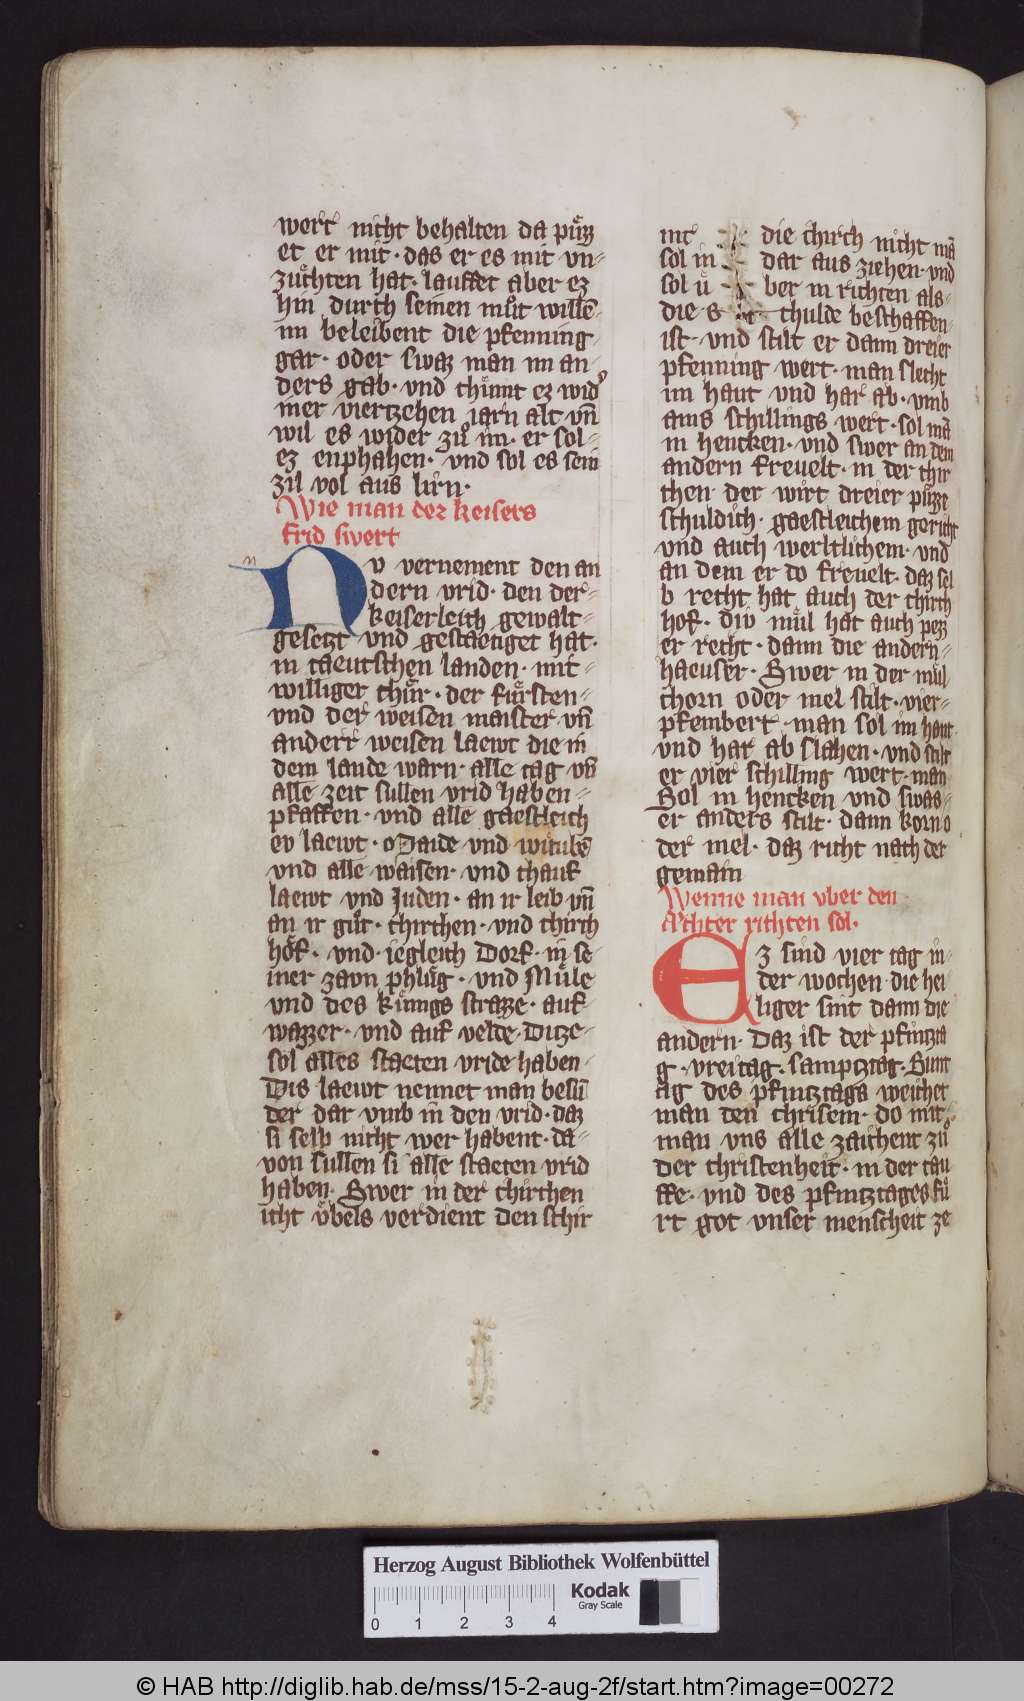 wert nicht behalten da püzz
et er mit · das er es mit vn=
zuͤchten hat · lauffet aber ez
hin durch seinen muͦt willē
im beleibent die pfenning
gar · oder swaz man im an
ders gab · vnd chuͤmt ez wid
iner viertzehen iarn alt vn̄
wil es wider zuͦ im · er sol=
ez enphahen · vnd sol es sein
zil vol aus lirn ·
Wie man der keisers
frid swert
NV vernement den an
dern vrid · den der=
keiserleich gewalt=
gesetzt vnd gestaetiget hat ·
in taeutschen landen · mit=
williger chuͤr · der fuͤrsten=
vnd der weisen maister vn̄
anderr weisen laewt die in
dem lande warn · alle tag vn̄
alle zeit sullen vrid haben=
pfaffen · vnd alle gaestleich
ev laewt · Maide vnd witubē
vnd alle waisen · vnd chauf
laewt vnd Juden · an ir leib vn̄
an ir guͦt · chirchen · vnd chirch
hoͤf · vnd iegleich Dorf · in se
iner zavn phluͤg · vnd Muͤle
vnd des kuͤnigs strazze · auf
wazzer · vnd auf velde · Ditze=
sol alles staeten vride haben ·
Dis laewt nennet man besū
der dar vmb in den vrid · daz
si selb nicht wer habent · da=
von sullen si alle staeten vrid
haben · Swer in der chirchen
icht vͤbels verdient den schir
mt die chirch nicht mā
sol in dar aus ziehen · vnd
sol uͤ ber in richten als=
die s chulde beschaffen=
ist · vnd stilt er dann dreier
pfenning wert · man slecht
im haut vnd har ab · vmb
ains schillings wert · sol mā
in hencken · vnd swer an dem
andern freuelt · in der chir
chen der wirt dreier puͤzze
schuldich · gaestleichem gericht
vnd auch werltlichem · vnd
an dem er do freuelt · daz sel
b recht hat auch der chirch
hof · div muͤl hat auch pezz
er recht · dann die andern=
haeuser · Swer in der muͤl
chorn oder mel stilt · vier=
pfembert · man sol im haut
vnd har ab slahen · vnd stilt
er vier schilling wert · man
Sol in hencken vnd swas=
er anders stilt · dann korn o
der mel · daz richt nach der
gewain
Wenne man vber den
Achter richten sol ·
EZ sind vier tag in=
der wochen die hei
liger sint dann die
andern · Daz ist der pfintzta
g · vreitag · sampztag · Sunt
ag des pfintztags weichet
man den chrisem · do mit
man vns alle zaichent zuͦ
der christenheit · in der tau
ffe · vnd des pfintztages fuͦ
rt got vnser menscheit ze
Herzog August Bibliothek Wolfenbüttel
Kodak
Gray Scale
0 1 2 3 4
© HAB http://diglib.hab.de/mss/15-2-aug-2f/start.htm?image=00272